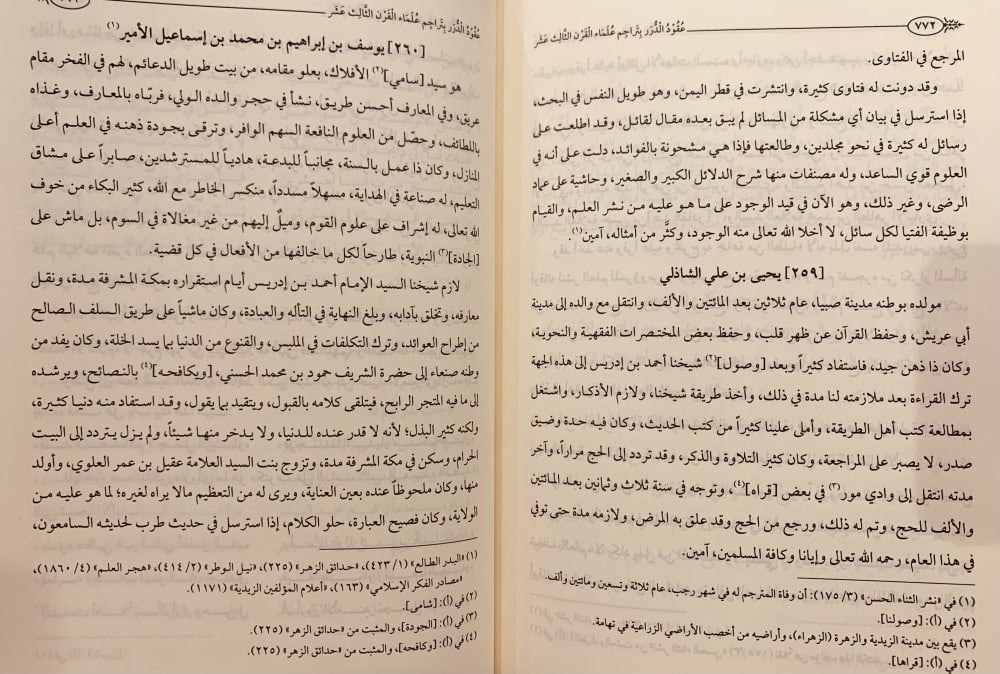 ٧٧٢
عُقُودُ الدُّرَر بِتَرَاجِم عُلَمَاء الْقَرْن الثَّالِث عَشَر
المرجع في الفتاوى.
وقد دونت له فتاوى كثيرة، وانتشرت في قطر اليمن، وهو طويل النفس في البحث،
إذا استرسل في بيان أي مشكلة من المسائل لم يبق بعده مقال لقائل، وقد اطلعت على
رسائل له كثيرة في نحو مجلدين، وطالعتها فإذا هي مشحونة بالفوائد، دلت على أنه في
العلوم قوي الساعد، وله مصنفات منها شرح الدلائل الكبير والصغير، وحاشية على عماد
الرضى، وغير ذلك، وهو الآن في قيد الوجود على ما هو عليه من نشر العلم، والقيام
بوظيفة الفتيا لكل سائل، لا أخلا الله تعالى منه الوجود، وكثَّر من أمثاله، آمين(١).
[٢٥٩] يحيى بن علي الشاذلي
مولده بوطنه مدينة صبيا، عام ثلاثين بعد المائتين والألف، وانتقل مع والده إلى مدينة
أبي عريش، وحفظ القرآن عن ظهر قلب، وحفظ بعض المختصرات الفقهية والنحوية،
وكان ذا ذهن جيد، فاستفاد كثيراً وبعد [وصول](٢) شيخنا أحمد بن إدريس إلى هذه الجهة
ترك القراءة بعد ملازمته لنا مدة في ذلك، وأخذ طريقة شيخنا، ولازم الأذكار، واشتغل
بمطالعة كتب أهل الطريقة، وأملى علينا كثيراً من كتب الحديث، وكان فيه حدة وضيق
صدر، لا يصبر على المراجعة، وكان كثير التلاوة والذكر، وقد تردد إلى الحج مراراً، وآخر
مدته انتقل إلى وادي مور(٣) في بعض [قراه](٤)، وتوجه في سنة ثلاث وثمانين بعد المائتين
والألف للحج، وتم له ذلك، ورجع من الحج وقد علق به المرض، ولازمه مدة حتى توفي
في هذا العام، رحمه الله تعالى وإيانا وكافة المسلمين، آمين.
(١) في «نشر الثناء الحسن» (٣/ ١٧٥): أن وفاة المترجم له في شهر رجب، عام ثلاثة وتسعين ومائتين وألف.
(٢) في (أ): [وصولنا].
(٣) يقع بين مدينة الزيدية والزهرة (الزهراء)، وأراضيه من أخصب الأراضي الزراعية في تهامة.
(٤) في (أ): [قراها].
عُقُودُ الدُّرَر بِتَرَاجِم عُلَمَاء الْقَرْن الثَّالِث عَشَر
[٢٦٠] يوسف بن إبراهيم بن محمد بن إسماعيل الأمير(١)
هو سيد [سامي](٢) الأفلاك، بعلو مقامه، من بيت طويل الدعائم، لهم في الفخر مقام
عريق، وفي المعارف أحسن طريق، نشأ في حجر والده الولي، فربّاه بالمعارف، وغذاه
باللطائف، وحصّل من العلوم النافعة السهم الوافر، وترقى بجودة ذهنه في العلم أعلى
المنازل، وكان ذا عمل بالسنة، مجانباً للبدعة، هادياً للمسترشدين، صابراً على مشاق
التعليم، له صناعة في الهداية، مسهلاً مسدداً، منكسر الخاطر مع الله، كثير البكاء من خوف
الله تعالى، له إشراف على علوم القوم، وميلٌ إليهم من غير مغالاة في السوم، بل ماش على
[الجادة](٣) النبوية، طارحاً لكل ما خالفها من الأفعال في كل قضية.
لازم شيخنا السيد الإمام أحمد بن إدريس أيام استقراره بمكة المشرفة مدة، ونقل
معارفه، وتخلق بآدابه، وبلغ النهاية في التأله والعبادة، وكان ماشياً على طريق السلف الصالح
من إطراح العوائد، وترك التكلفات في الملبس، والقنوع من الدنيا بما يسد الخلة، وكان يفد من
وطنه صنعاء إلى حضرة الشريف حمود بن محمد الحسني، [ويكافحه](٤) بالنصائح، ويرشده
إلى ما فيه المتجر الرابح، فيتلقى كلامه بالقبول، ويتقيد بما يقول، وقد استفاد منه دنيا كثيرة،
ولكنه كثير البذل؛ لأنه لا قدر عنده للدنيا، ولا يدخر منها شيئاً، ولم يزل يتردد إلى البيت
الحرام، وسكن في مكة المشرفة مدة، وتزوج بنت السيد العلامة عقيل بن عمر العلوي، وأولد
منها، وكان ملحوظاً عنده بعين العناية، ويرى له من التعظيم مالا يراه لغيره؛ لما هو عليه من
الولاية، وكان فصيح العبارة، حلو الكلام، إذا استرسل في حديث طرب لحديثه السامعون،
(١) «البدر الطالع» (١/ ٤٢٣)، «حدائق الزهر» (٢٢٥)، «نيل الوطر» (٢/ ٤١٤)، «هجر العلم» (٤/ ١٨٦٠)،
«مصادر الفكر الإسلامي» (١٦٣)، «أعلام المؤلفين الزيدية» (١١٧١).
(٢) في (أ): [شامى].
(٣) في (أ): [الجودة]، والمثبت من «حدائق الزهر» (٢٢٥).
(٤) في (أ): [وكافحه]، والمثبت من «حدائق الزهر» (٢٢٥).